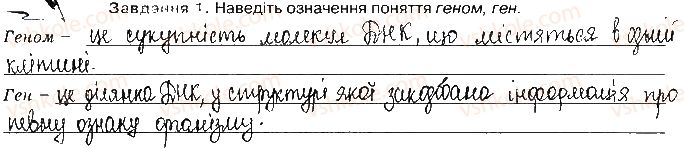 Завдання 1. Наведіть означення поняття геном, ген.
Геном – це сукупність молекул ДНК, що містяться в одній
клітині.
Ген – це ділянка ДНК, у структурі якої закодована інформація про
певну ознаку організму.